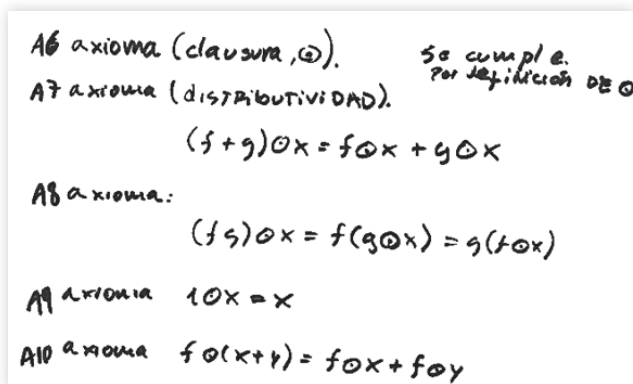 A6 axioma (clausura, ⊙). Se cumple.
Por definición DE ⊙
A7 axioma (DISTRIbutiviDAD).
(f + g)⊙x = f⊙x + g⊙x
A8 axioma:
(fg)⊙x = f(g⊙x) = g(f⊙x)
A9 axioma 1⊙x = x
A10 axioma f⊙(x+y) = f⊙x + f⊙y